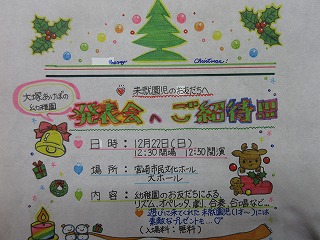 Merry Christmas!
未就園児のお友だちへ
大塚あけぼの
幼稚園
発表会へご招待!!!
日時:12月22日(日)
12:30開場 12:50開演
場所:宮崎市民文化ホール
大ホール
内容:幼稚園のお友だちによる
リズム、オペレッタ、劇、合奏、合唱など…
遊びに来てくれた未就園児(1才〜)には
素敵なプレゼントも…♡
(入場料:無料)